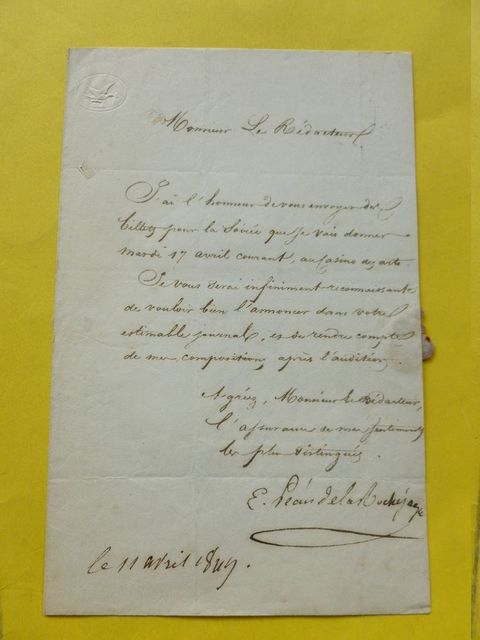 Monsieur Le Rédacteur,
J'ai l'honneur de vous envoyer des
billets pour la Soirée que je vais donner
mardi 17 avril courant, au Casino des arts.
Je vous serai infiniment reconnaissante
de vouloir bien l'annoncer dans votre
estimable journal, et de rendre compte
de mes compositions après l'audition.
Agréez, Monsieur le Rédacteur,
l'assurance de mes sentiments
les plus distingués.
E. de la
le 11 avril 1849.